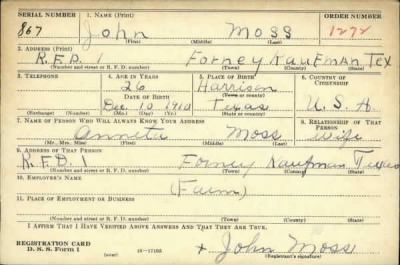 SERIAL NUMBER 1. NAME (Print) ORDER NUMBER
867 John Moss 1272
(First) (Middle) (Last)
2. ADDRESS (Print)
R.F.D. 1 Forney Kaufman Tex
(Number and street or R. F. D. number) (Town) (County) (State)
3. TELEPHONE 4. AGE IN YEARS 5. PLACE OF BIRTH 6. COUNTRY OF CITIZENSHIP
26 Harrison
DATE OF BIRTH (Town or county)
Dec 10 1910 Texas U.S.A.
(Exchange) (Number) (Mo.) (Day) (Yr.) (State or country)
7. NAME OF PERSON WHO WILL ALWAYS KNOW YOUR ADDRESS 8. RELATIONSHIP OF THAT PERSON
Anneta Moss Wife
(Mr., Mrs., Miss) (First) (Middle) (Last)
9. ADDRESS OF THAT PERSON
R.F.D. 1 Forney Kaufman Texas
(Number and street or R. F. D. number) (Town) (County) (State)
10. EMPLOYER'S NAME
(Farm)
11. PLACE OF EMPLOYMENT OR BUSINESS
(Number and street or R. F. D. number) (Town) (County) (State)
I AFFIRM THAT I HAVE VERIFIED ABOVE ANSWERS AND THAT THEY ARE TRUE.
REGISTRATION CARD
D. S. S. Form 1 (over) 16—17105 + John Moss
(Registrant's signature)